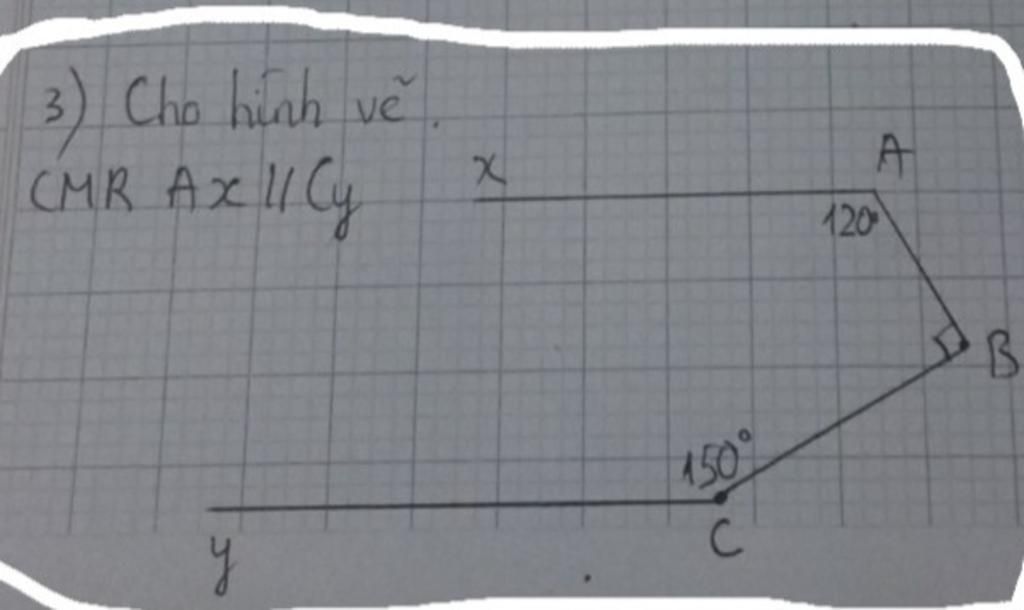 3) Cho hình vẽ.
CMR Ax // Cy
x
A
120°
B
150°
C
y